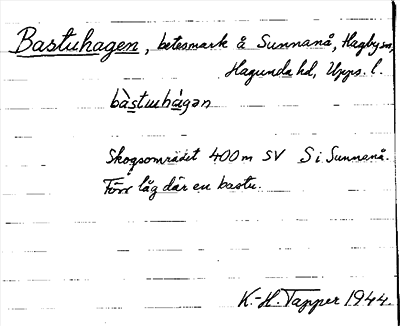 Bastuhagen, betesmark å Sunnanå, Hagby sn,
Hagunda hd, Upps. l.
bàstuhágən
Skogsområdet 400 m SV S i Sunnanå.
Förr låg där en bastu.
K.-H. Tapper 1944.